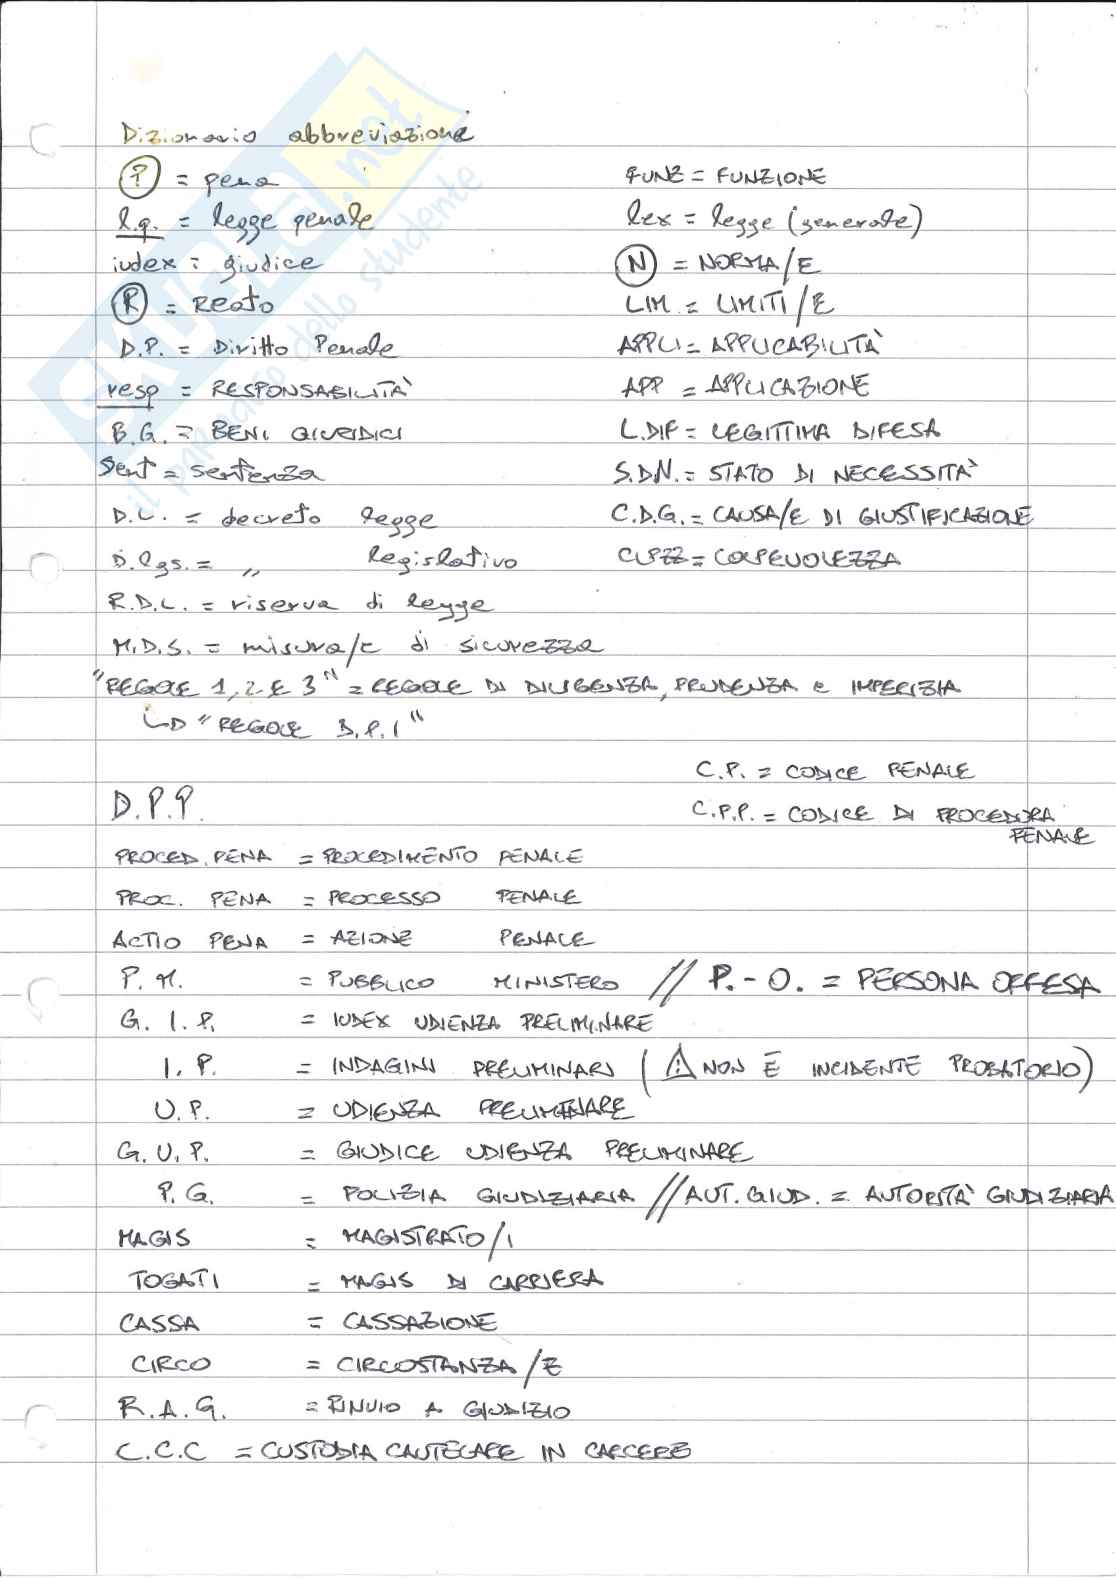 Dizionario abbreviazione
P = pena
l.p. = legge penale
iudex = giudice
R = Reato
D.P. = Diritto Penale
resp = RESPONSABILITÀ
B.G. = BENI GIURIDICI
Sent = sentenza
D.L. = decreto legge
D.lgs. = " legislativo
R.D.L. = riserva di legge
M.D.S. = misura/e di sicurezza
FUNZ = FUNZIONE
lex = legge (generale)
N = NORMA/E
LIM = LIMITI/E
APPLI = APPLICABILITÀ
APP = APPLICAZIONE
L.DIF = LEGITTIMA DIFESA
S.D.N. = STATO DI NECESSITÀ
C.D.G. = CAUSA/E DI GIUSTIFICAZIONE
CLPZZ = COLPEVOLEZZA
"REGOLE 1, 2 E 3" = REGOLE DI DILIGENZA, PRUDENZA e IMPERIZIA
"REGOLE D.P.I"
C.P. = CODICE PENALE
C.P.P. = CODICE DI PROCEDURA
PENALE
D.P.P.
PROCED. PENA = PROCEDIMENTO PENALE
PROC. PENA = PROCESSO PENALE
ACTIO PENA = AZIONE PENALE
P.M. = PUBBLICO MINISTERO // P.-O. = PERSONA OFFESA
G.I.P. = IUDEX UDIENZA PRELIMINARE
I.P. = INDAGINI PRELIMINARI (⚠ NON È INCIDENTE PROBATORIO)
U.P. = UDIENZA PRELIMINARE
G.U.P. = GIUDICE UDIENZA PRELIMINARE
P.G. = POLIZIA GIUDIZIARIA // AUT. GIUD. = AUTORITÀ GIUDIZIARIA
MAGIS = MAGISTRATO/I
TOGATI = MAGIS DI CARRIERA
CASSA = CASSAZIONE
CIRCO = CIRCOSTANZA/E
R.A.G. = RINVIO A GIUDIZIO
C.C.C = CUSTODIA CAUTELARE IN CARCERE
SKUOLA.net
il paradiso dello studente